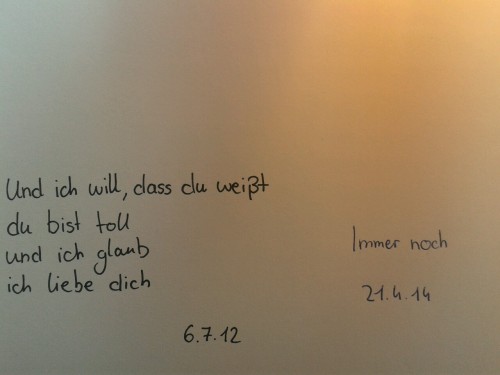 Und ich will, dass du weißt
du bist toll
und ich glaub
ich liebe dich
6.7.12
Immer noch
21.4.14